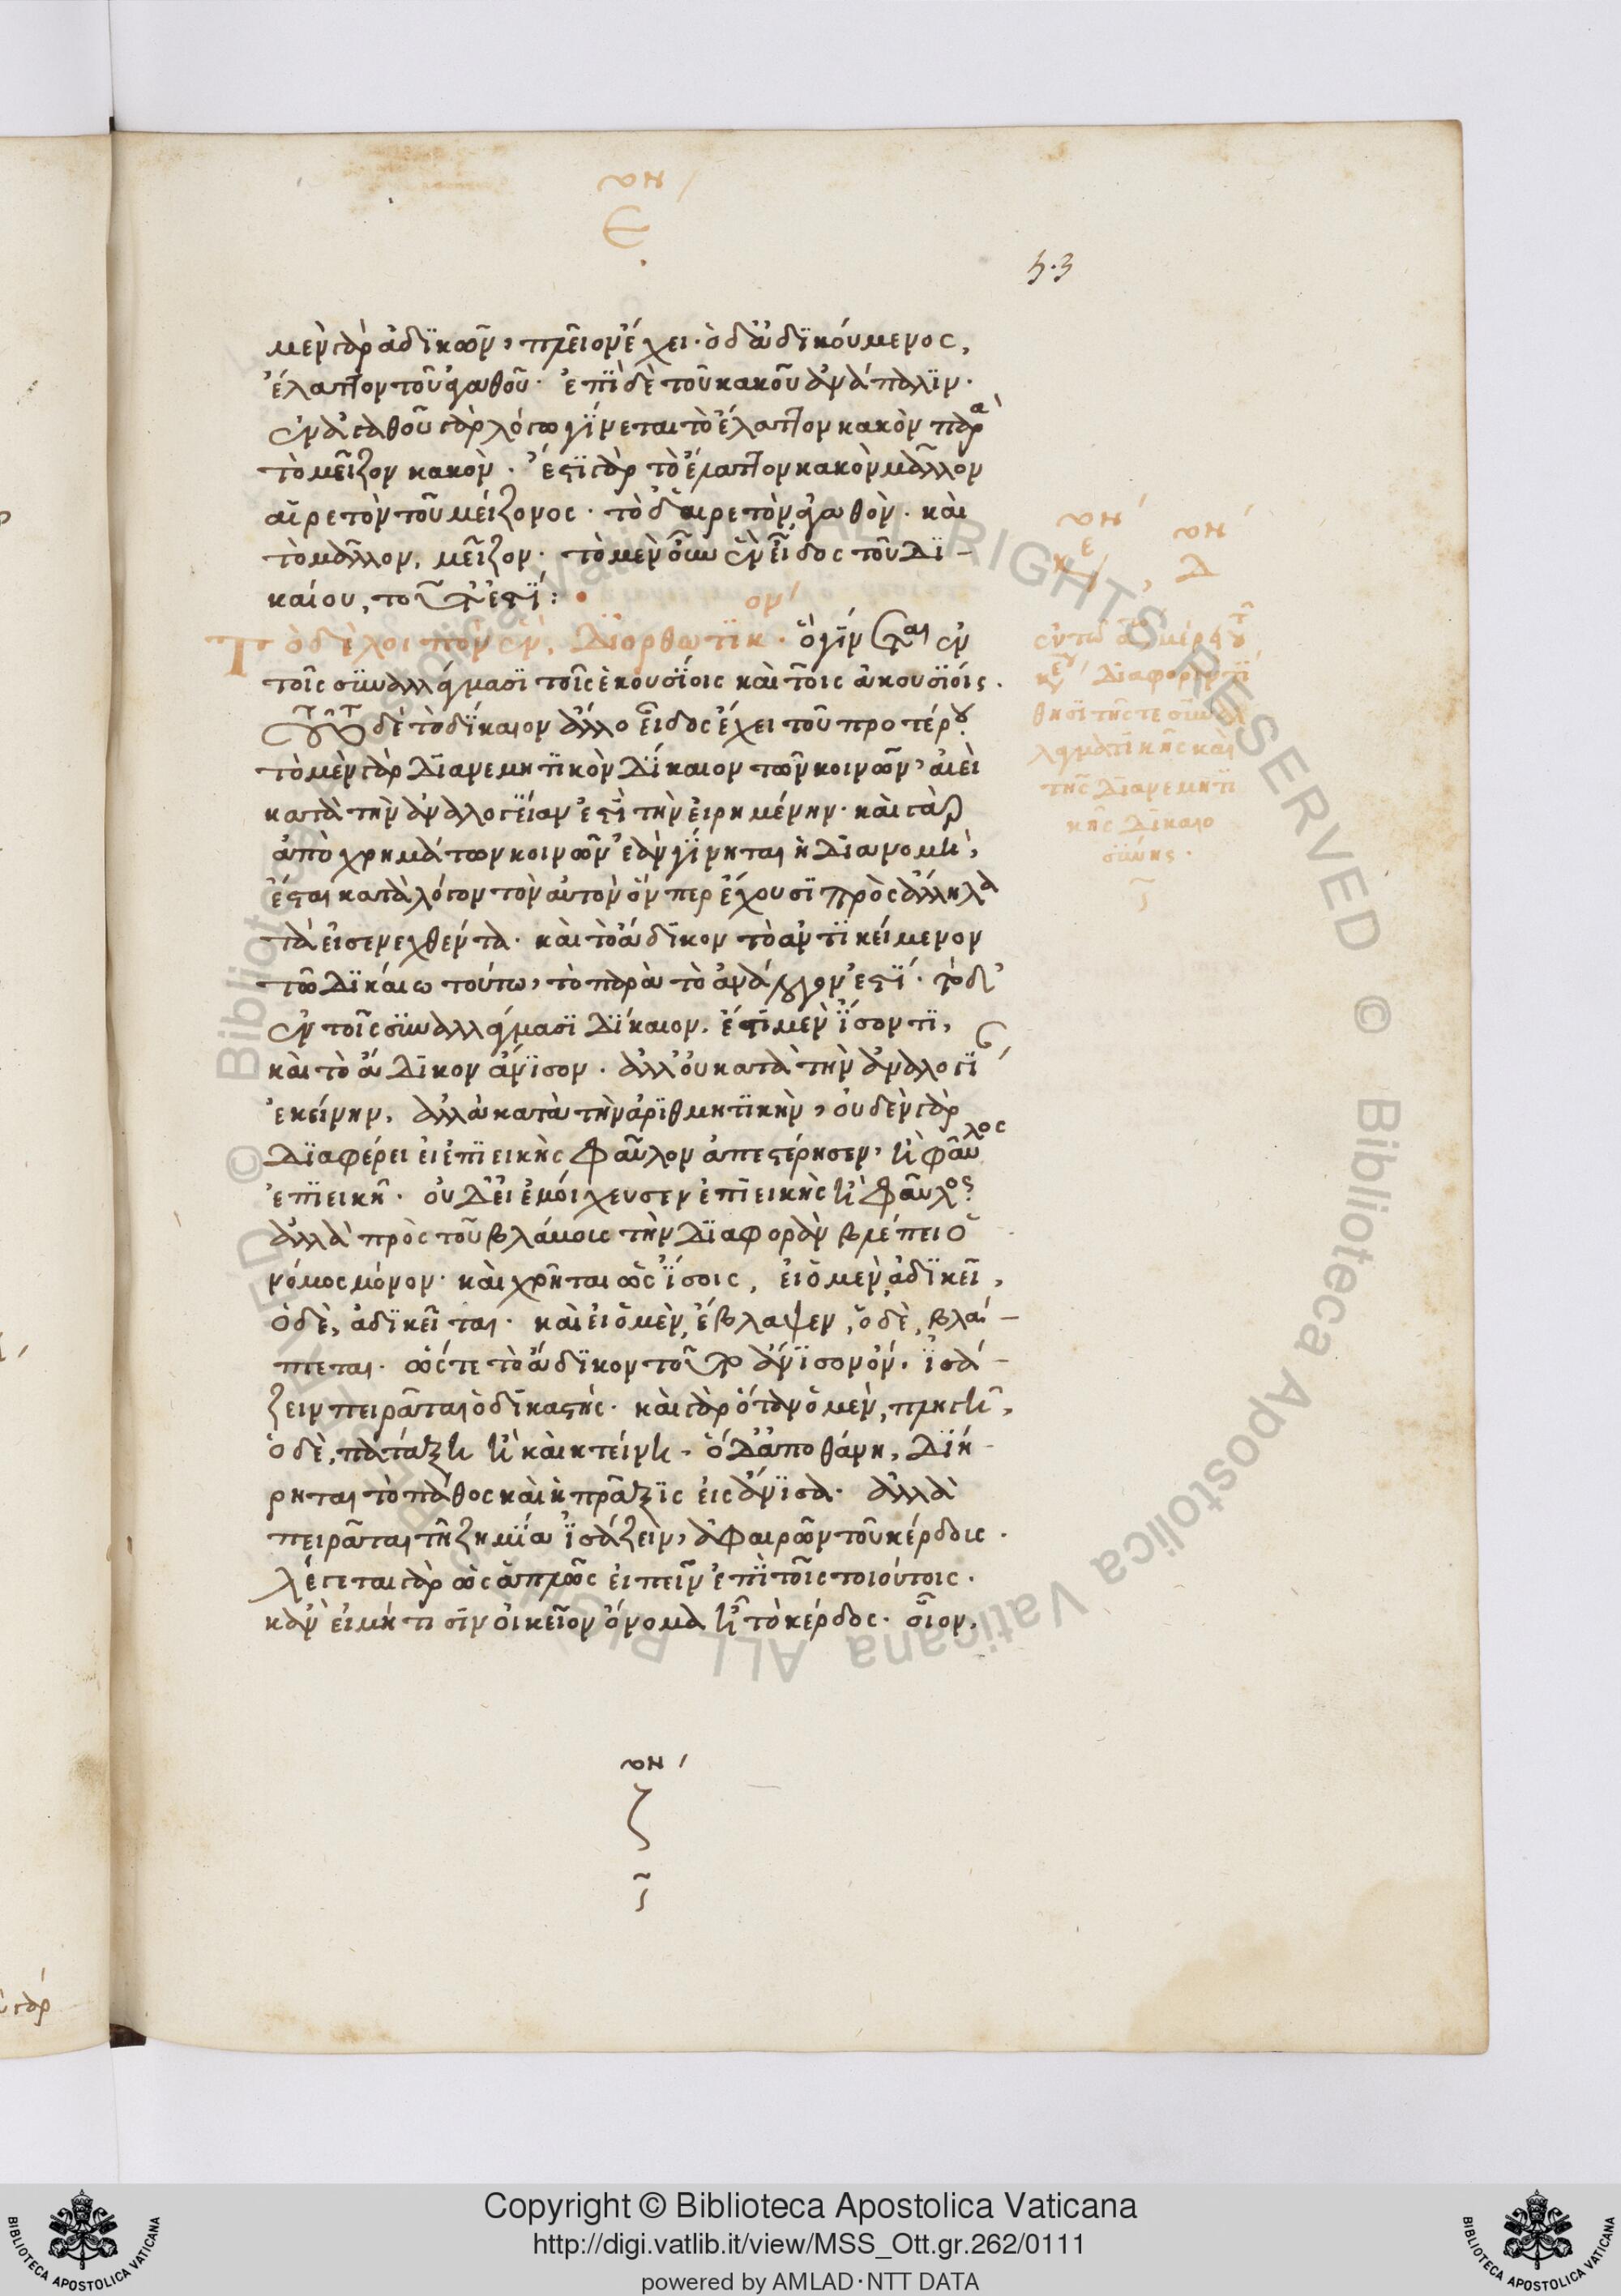 Ε
53
μὲν γὰρ ἀδικῶν, πλεῖον ἔχει· ὁ δ' ἀδικούμενος,
ἔλαττον τοῦ ἀγαθοῦ· ἐπὶ δὲ τοῦ κακοῦ ἀνάπαλιν·
ἐν ἀγαθοῦ γὰρ λόγω γίνεται τὸ ἔλαττον κακὸν παρὰ
τὸ μεῖζον κακὸν· ἔστι γὰρ τὸ ἔλαττον κακὸν μᾶλλον
αἱρετὸν τοῦ μείζονος· τὸ δ' αἱρετὸν ἀγαθὸν· καὶ
τὸ μᾶλλον, μεῖζον· τὸ μὲν οὖν ἓν εἶδος τοῦ δι-
καίου, τοῦτ' ἐστί:
Τὸ δὲ λοιπὸν ἓν, διορθωτικόν· ὃ γίνεται ἐν
τοῖς συναλλάγμασι τοῖς ἑκουσίοις καὶ τοῖς ἀκουσίοις.
τοῦτο δὲ τὸ δίκαιον ἄλλο εἶδος ἔχει τοῦ προτέρου.
τὸ μὲν γὰρ διανεμητικὸν δίκαιον τῶν κοινῶν, ἀιεὶ
κατὰ τὴν ἀναλογίαν ἐστὶ τὴν εἰρημένην· καὶ γὰρ
ἀπὸ χρημάτων κοινῶν ἐὰν γίνηται ἡ διανομὴ,
ἔσται κατὰ λόγον τὸν αὐτὸν ὅνπερ ἔχουσι πρὸς ἄλληλα
τὰ εἰσενεχθέντα· καὶ τὸ ἄδικον τὸ ἀντικείμενον
τῶ δικαίω τούτω, τὸ παρὰ τὸ ἀνάλογον ἐστί· τὸ δ'
ἐν τοῖς συναλλάγμασι δίκαιον, ἔστι μὲν ἴσον τι,
καὶ τὸ ἄδικον ἄνισον· ἀλλ' οὐ κατὰ τὴν ἀναλογίαν
ἐκείνην, ἀλλὰ κατὰ τὴν ἀριθμητικὴν, οὐδὲν γὰρ
διαφέρει εἰ ἐπιεικὴς φαῦλον ἀπεστέρησεν, ἢ φαῦλος
ἐπιεικῆ· οὐδ' εἰ ἐμοίχευσεν ἐπιεικὴς ἢ φαῦλος·
ἀλλὰ πρὸς τοῦ βλάβους τὴν διαφορὰν βλέπει ὁ
νόμος μόνον· καὶ χρῆται ὡς ἴσοις, εἰ ὁ μὲν ἀδικεῖ,
ὁ δὲ, ἀδικεῖται· καὶ εἰ ὁ μὲν, ἔβλαψεν, ὁ δὲ, βλά-
πτεται· ὥστε τὸ ἄδικον τοῦτο ἄνισον ὄν, ἰσά-
ζειν πειρᾶται ὁ δικαστής· καὶ γὰρ ὅταν ὁ μὲν, πληγῆ,
ὁ δὲ, πατάξη ἢ καὶ κτείνη, ὁ δ' ἀποθάνη, διή-
ρηται τὸ πάθος καὶ ἡ πρᾶξις εἰς ἄνισα· ἀλλὰ
πειρᾶται τῆ ζημία ἰσάζειν, ἀφαιρῶν τοῦ κέρδους.
λέγεται γὰρ ὡς ἁπλῶς εἰπεῖν ἐπὶ τοῖς τοιούτοις.
κἂν εἰ μή τισιν οἰκεῖον ὄνομα ἦ τὸ κέρδος· οἷον,
Δ
διαφορὰν τί
θησι τῆς τε συναλ
λαγματικῆς καὶ
τῆς διανεμητι
κῆς δικαιο
σύνης·
ζ